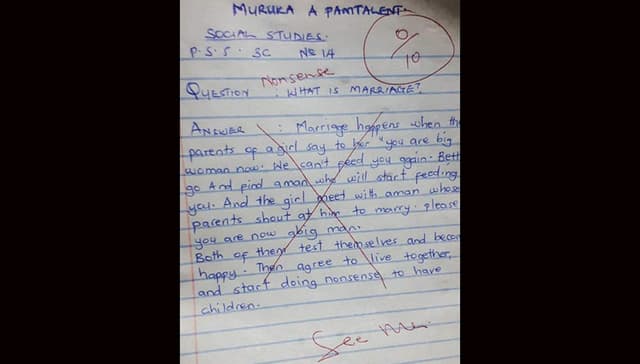 MURUKA A PAMTALENT.
SOCIAL STUDIES.
P.S.S. SC № 14
0/10
Nonsense
QUESTION : WHAT IS MARRIAGE?
ANSWER : Marriage happens when the
parents of a girl say to her "you are big
woman now. We can't feed you again. Bett
go And find aman who will start feeding
you. And the girl meet with aman whose
parents shout at him to marry. please
you are now abig man.
Both of them test themselves and becom
happy. Then agree to live together,
and start doing nonsense to have
children.
See Me.